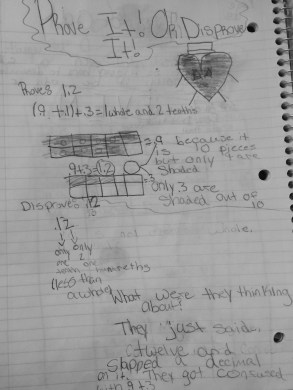 Prove It! Or Disprove
It!
Prove: 1.2
(9 + .1) + 3 = 1 whole and 2 tenths
= .9 because it
is 10 pieces
but only 9 are
shaded
9+3=(1.2)
only 3 are
shaded out of
10
Disprove: .12
.12
only only
one 2
(less than
a whole)
What were they thinking
about?
They just said
twelve and
slapped a decimal
on it. They got confused
with 9+3